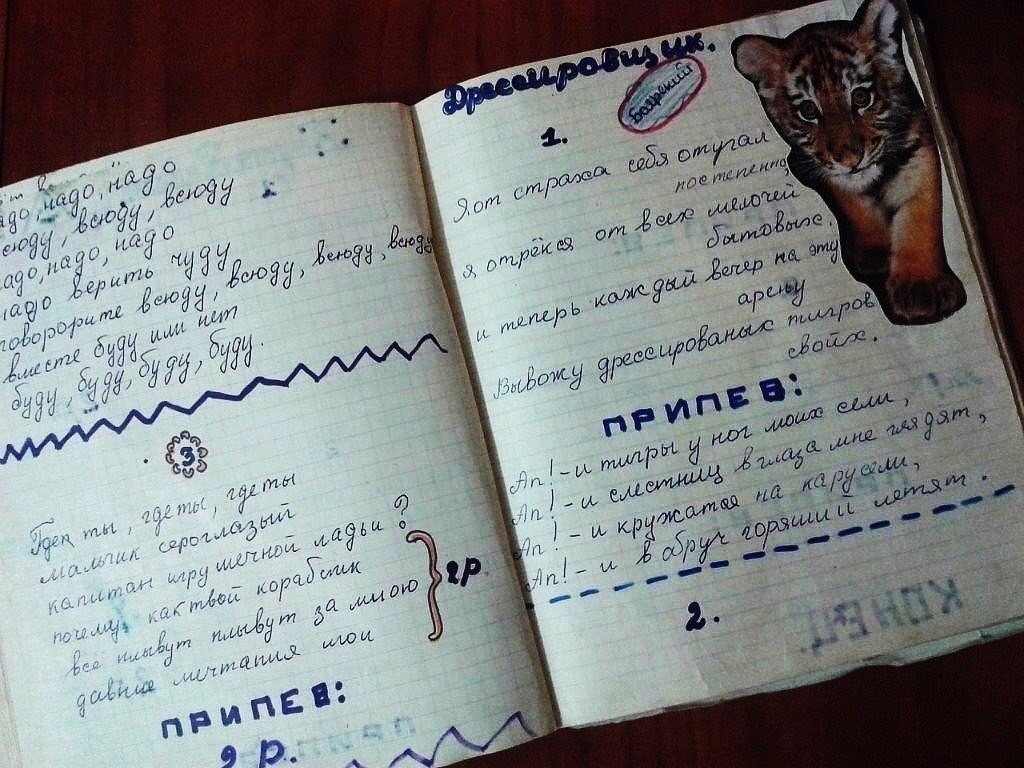 надо, надо, надо
всюду, всюду, всюду
надо, надо, надо
надо верить чуду
говорорите всюду, всюду, всюду, всюду
вместе буду или нет
буду, буду, буду, буду.
3
Где ты, где ты, где ты
мальчик сероглазый
капитан игрушечной ладьи ?
почему, как твой кораблик
всё плывут плывут за мною
давние мечтания мои
2 р.
ПРИПЕВ:
2 р.
Дрессировщик.
Боярский
1.
Я от страха себя отучал
постепенно,
я отрёкся от всех мелочей
бытовых.
и теперь каждый вечер на эту
арену
Вывожу дрессированых тигров
свойх.
ПРИПЕВ:
Ап! - и тигры у ног моих сели,
Ап! - и слестниц в глаза мне глядят,
Ап! - и кружатся на карусели,
Ап! - и в обруч горящий летят.
2.